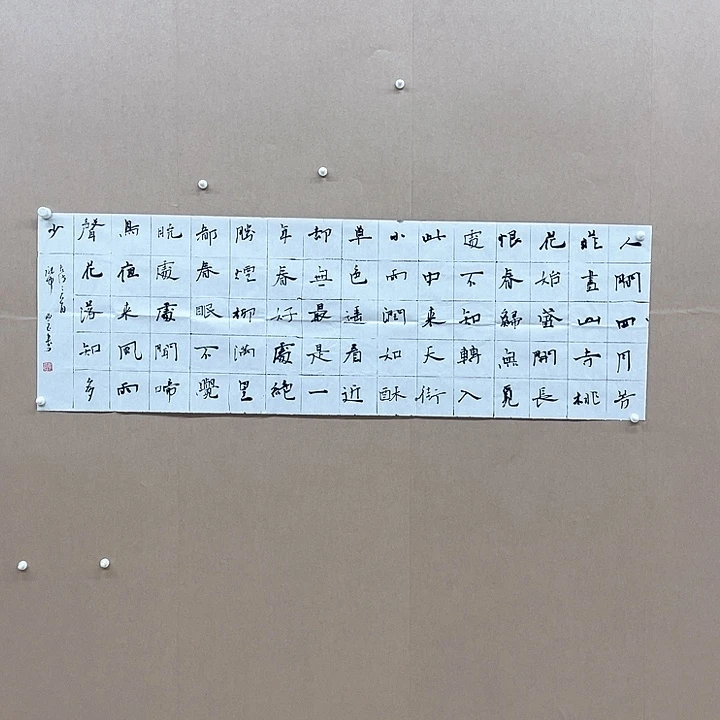 人間四月芳
菲盡山寺桃
花始盛開長
恨春歸無覓
處不知轉入
此中来天街
小雨潤如酥
草色遥看近
却無最是一
年春好處絶
勝煙柳滿皇
都春眠不覺
曉處處聞啼
鳥夜来風雨
聲花落知多
少
古詩三首